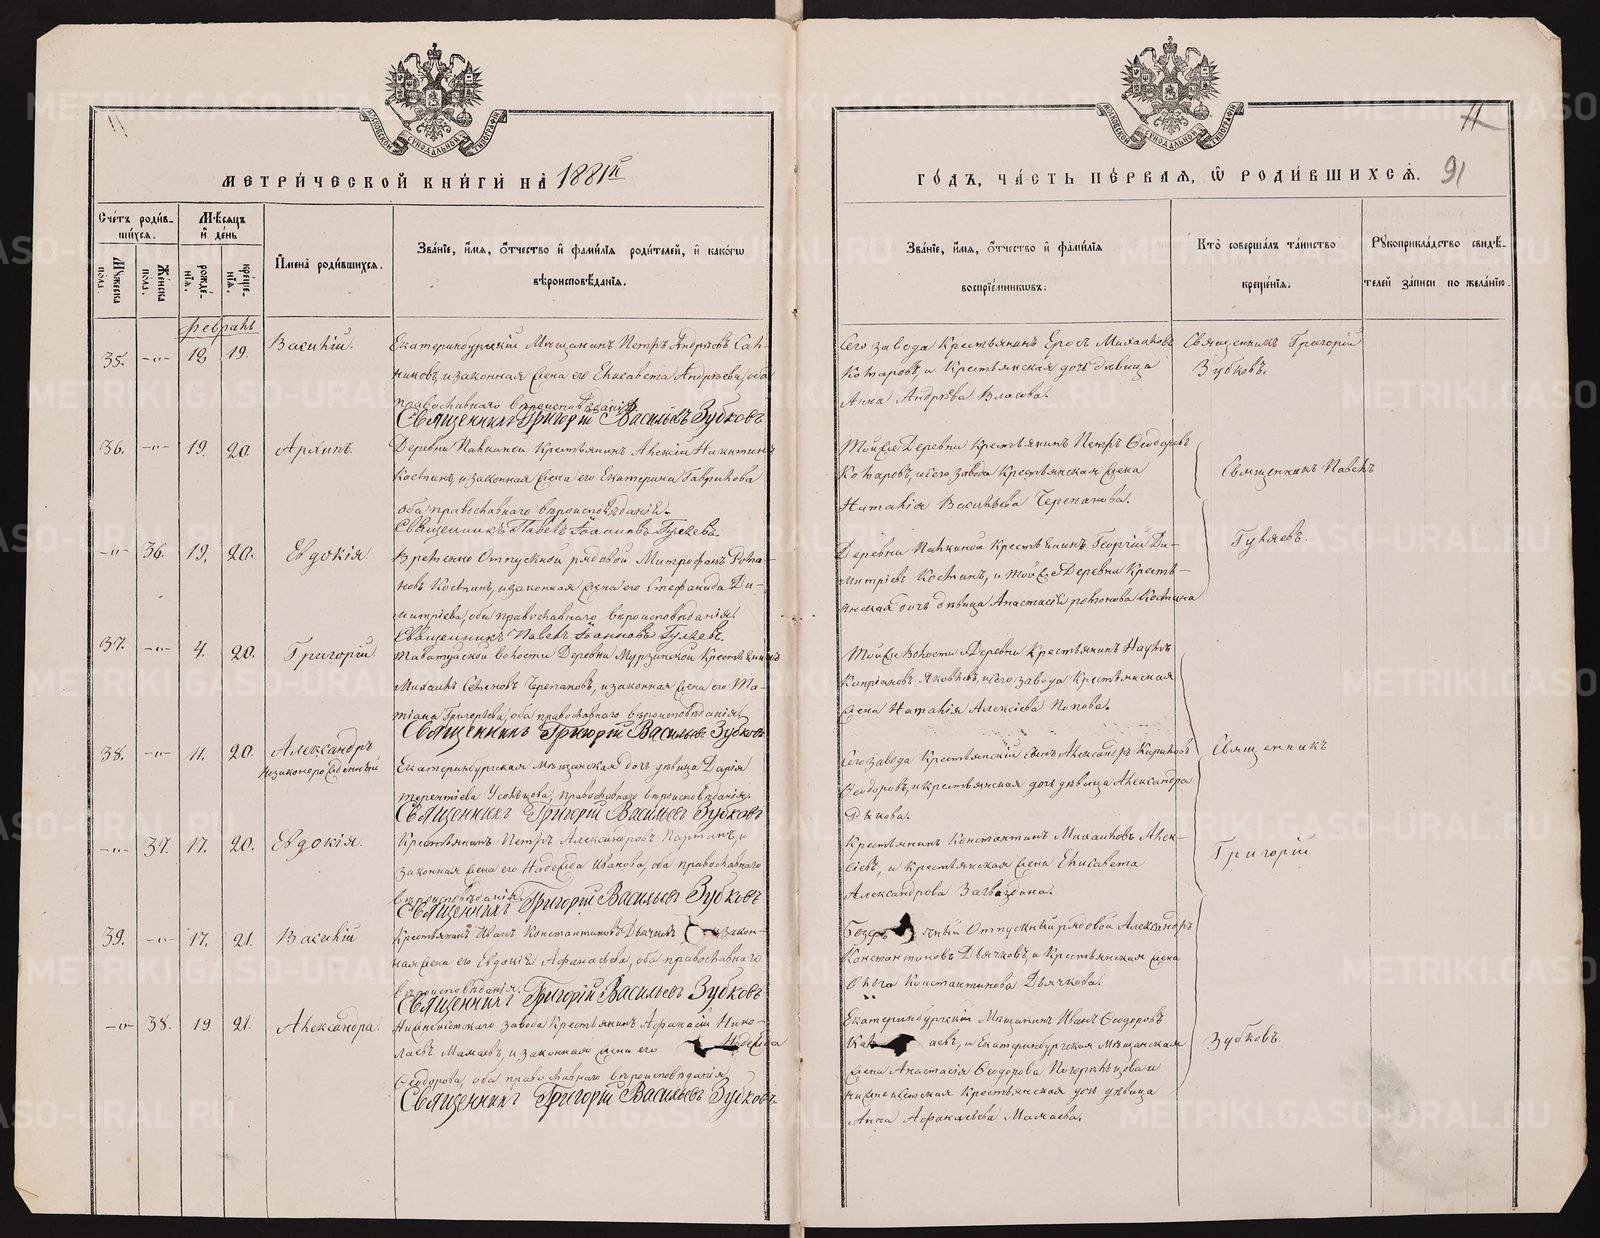 МЕТРИЧЕСКОЙ КНИГИ НА 1881й
ГОДЪ, ЧАСТЬ ПЕРВАЯ, Ѡ РОДИВШИХСЯ.
91
Счетъ родив-
шихся.
Мѣсяцъ
и день
Имена родившихся.
Званіе, имя, отчество и фамилія родителей, и какогѡ
вѣроисповѣданія.
Званіе, имя, отчество и фамилія
воспріемниковъ.
Кто совершалъ таинство
крещенія.
Рукоприкладство свидѣ-
телей записи по желанію.
Мужеска пола.
Женска пола.
рожде-
нія.
креще-
нія.
февраль
35. -„- 18 19. Василій.
Екатеринбургскій Мѣщанинъ Петръ Андреевъ Саль-
никовъ, и законная жена его Елисавета Андреева, оба
православнаго вѣроисповѣданія.
Священникъ Григорій Васильевъ Зубковъ
Сего завода Крестьянинъ Егоръ Михаиловъ
Котаровъ, и Крестьянская дочь дѣвица
Анна Андреева Власова.
Священникъ Григорій
Зубковъ.
36. -„- 19. 20. Архипъ.
Деревни Палкиной Крестьянинъ Алексій Никитинъ
Костинъ, и законная жена его Екатерина Гаврилова
оба православнаго вѣроисповѣданія.
Священникъ Павелъ Іоанновъ Гуляевъ
Той же Деревни Крестьянинъ Петръ Ѳеодоровъ
Котаровъ, и сего завода Крестьянская жена
Наталія Васильева Черепанова.
Священникъ Павелъ
Гуляевъ.
-„- 36. 19. 20. Евдокія
Временно Отпускной рядовой Митрофанъ Рома-
новъ Костинъ, и законная жена его Стефанида Ди-
митріева, оба православнаго вѣроисповѣданія.
Священникъ Павелъ Іоанновъ Гуляевъ.
Деревни Палкиной Крестьянинъ Георгій Ди-
митріевъ Костинъ, и той же Деревни Кресть-
янская дочь дѣвица Анастасія Романова Костина
37. -„- 4. 20. Григорій
Таватуйской волости Деревни Мурзинской Крестьянинъ
Михаилъ Семеновъ Черепановъ, и законная жена его Та-
тіана Григорьева, оба православнаго вѣроисповѣданія.
Священникъ Григорій Васильевъ Зубковъ
Той же Волости и Деревни Крестьянинъ Наумъ
Кипріановъ Яковлевъ, и сего завода Крестьянская
жена Наталія Алексіева Попова.
38. -„- 11. 20. Александръ
незаконорожденный
Екатеринбургская Мѣщанская дочь дѣвица Дарія
Терентіева Усольцова, православнаго вѣроисповѣданія.
Священникъ Григорій Васильевъ Зубковъ
Сего завода Крестьянскій сынъ Александръ Кириловъ
Ѳеодоровъ, и крестьянская дочь дѣвица Александра
Дькова.
Священникъ
-„- 37. 17. 20. Евдокія.
Крестьянинъ Петръ Александровъ Партинъ, и
законная жена его Надежда Иванова, оба православнаго
вѣроисповѣданія.
Священникъ Григорій Васильевъ Зубковъ
Крестьянинъ Константинъ Михаиловъ Алек-
сіевъ, и Крестьянская жена Елисавета
Александрова Загвоздина.
Григорій
39. -„- 17. 21. Василій
Крестьянинъ Иванъ Константиновъ Дьячковъ и закон-
ная жена его Евдокія Афанасьева, оба православнаго
вѣроисповѣданія.
Священникъ Григорій Васильевъ Зубковъ
чный Отпускный рядовой Александръ
Константиновъ Дьячковъ, и Крестьянская жена
Ольга Константинова Дьячкова.
-„- 38. 19 21. Александра.
Нижнеисетскаго завода Крестьянинъ Афанасій Нико-
лаевъ Мамаевъ, и законная жена его Надежда
Ѳеодорова, оба православнаго вѣроисповѣданія
Священникъ Григорій Васильевъ Зубковъ
Екатеринбургскій Мѣщанинъ Иванъ Ѳеодоровъ
аевъ, и Екатеринбургская Мѣщанская
жена Анастасія Ѳеодорова Погорѣльцова и
нижнеисетская Крестьянская дочь дѣвица
Анна Афанасьева Мамаева.
Зубковъ.
METRIKI.GASO-URAL.RU